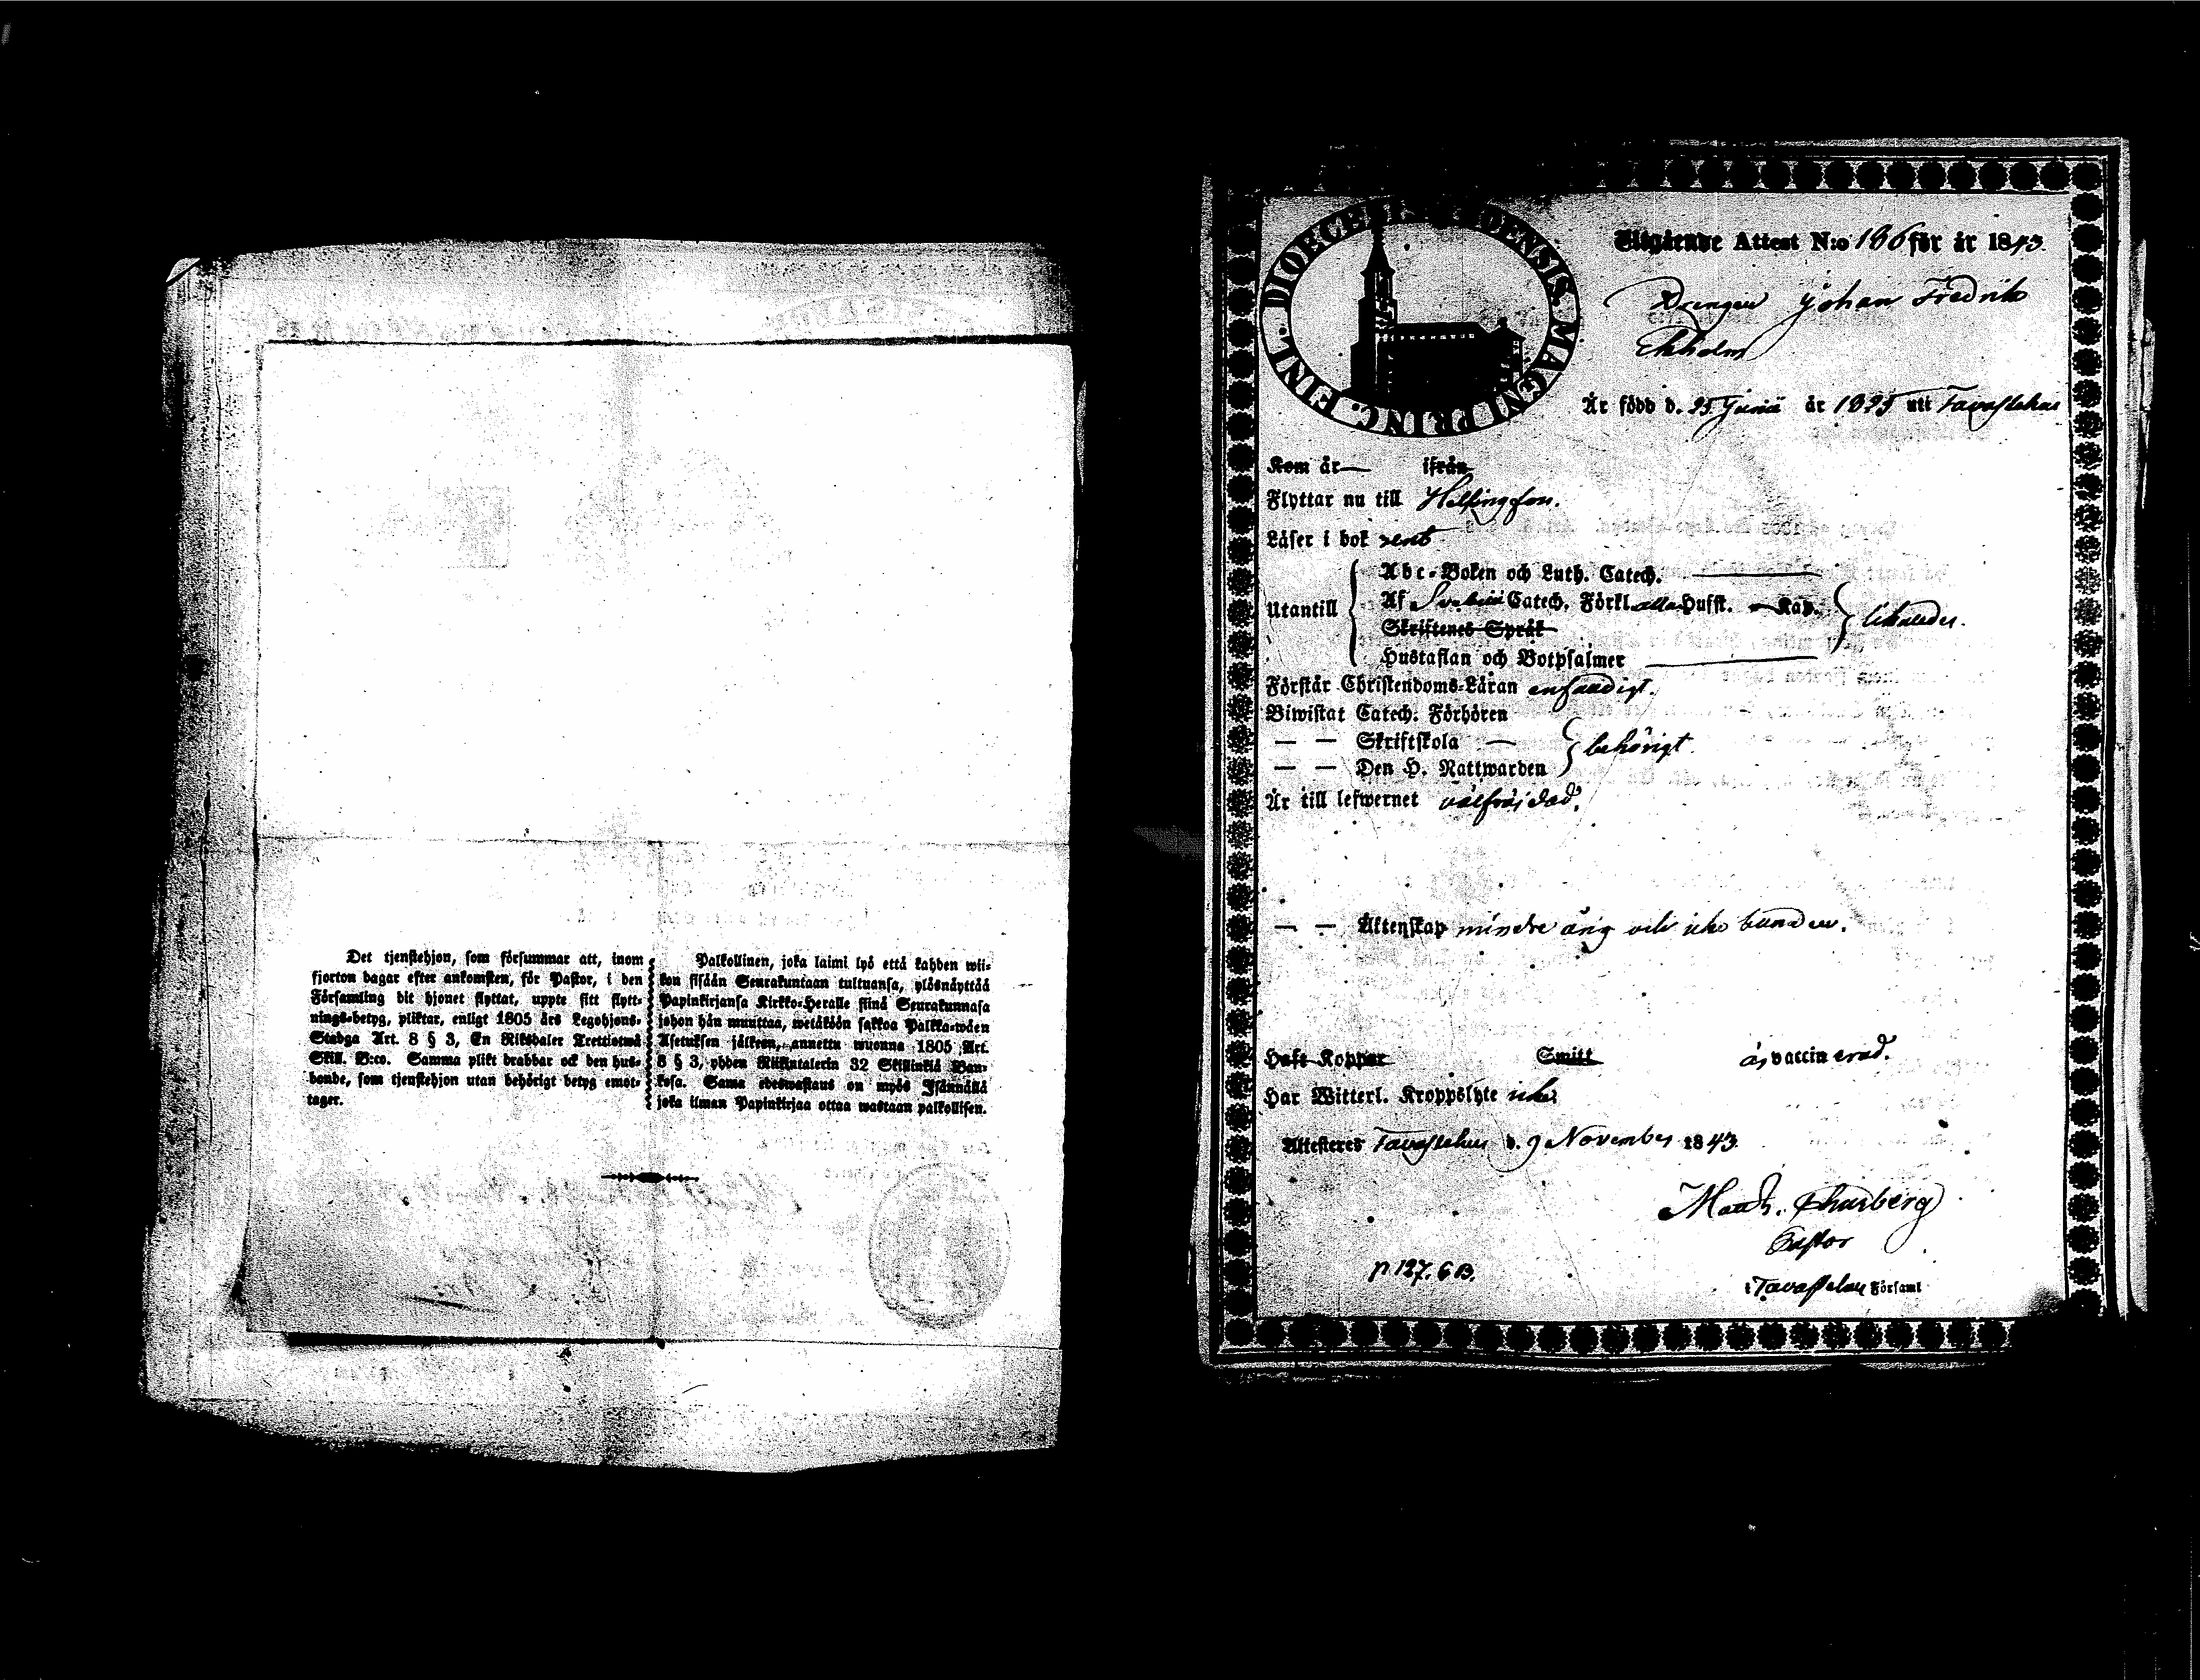 Det tjenstehjon, som försummar att, inom
fjorton dagar efter ankomsten, för Pastor, i den
Församling dit hjonet flyttat, uppte sitt flytt-
nings-betyg, pliktar, enligt 1805 års Legohjons-
Stadga Art. 8 § 3, En Riksdaler Trettiotwå
Skill. B:co. Samma plikt drabbar ock den hus-
bonde, som tjenstehjon utan behörigt betyg emot-
tager.
Palkollinen, joka laimi lyö että kahden wii-
kon sisään Seurakuntaan tultuansa, ylösnäyttää
Papinkirjansa Kirkko-Heralle siinä Seurakunnasa
johon hän muuttaa, wetäköön sakkoa Palkka-wäen
Asetuksen jälkeen, annettu wuonna 1805 Art.
8 § 3, yhden Riikintalerin 32 Skillinkiä Ban-
kosa. Sama edeswastaus on myös Isännällä
joka ilman Papinkirjaa ottaa wastaan palkollisen.
FINL. DIOECES. ABOENSIS. MAGNI PRINC.
Utgående Attest N:o 186 för år 1843
Drengen Johan Fredrik
Ekholm
Är född d. 25 Junii år 1825 uti Tavastehus
Kom år — ifrån
Flyttar nu till Helsingfors.
Läser i bok rent
Utantill
Abc-Boken och Luth. Catech.
Af Svebilii Catech. Förkl. alla Hufst. Kap.
Skriftenes Språk
Hustaflan och Botpsalmer
likaledes.
Förstår Christendoms-Läran enfaldigt.
Biwistat Catech. Förhören
— — Skriftskola —
— — Den H. Nattwarden
behörigt
Är till lefwernet välfräjdad.
— — Äktenskap minderårig och icke bunden.
Haft Koppor Smitt är vaccinerad.
Har Witterl. Kroppslyte icke
Attesteras Tavastehus d. 9 November 1843
Math.
Pastor
i Tavastehus Församl
p. 127. 6 B.